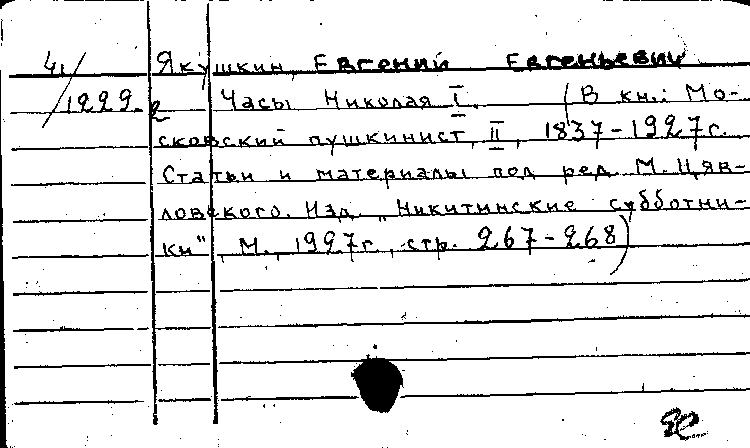 41/ Якушкин, Евгений Евгеньевич
/1229-2 Часы Николая I. (В кн.: Мо-
сковский пушкинист, II, 1837-1927г.
Статьи и материалы под ред. М. Цяв-
ловского. Изд. „Никитинские субботни-
ки", М., 1927г., стр. 267-268)